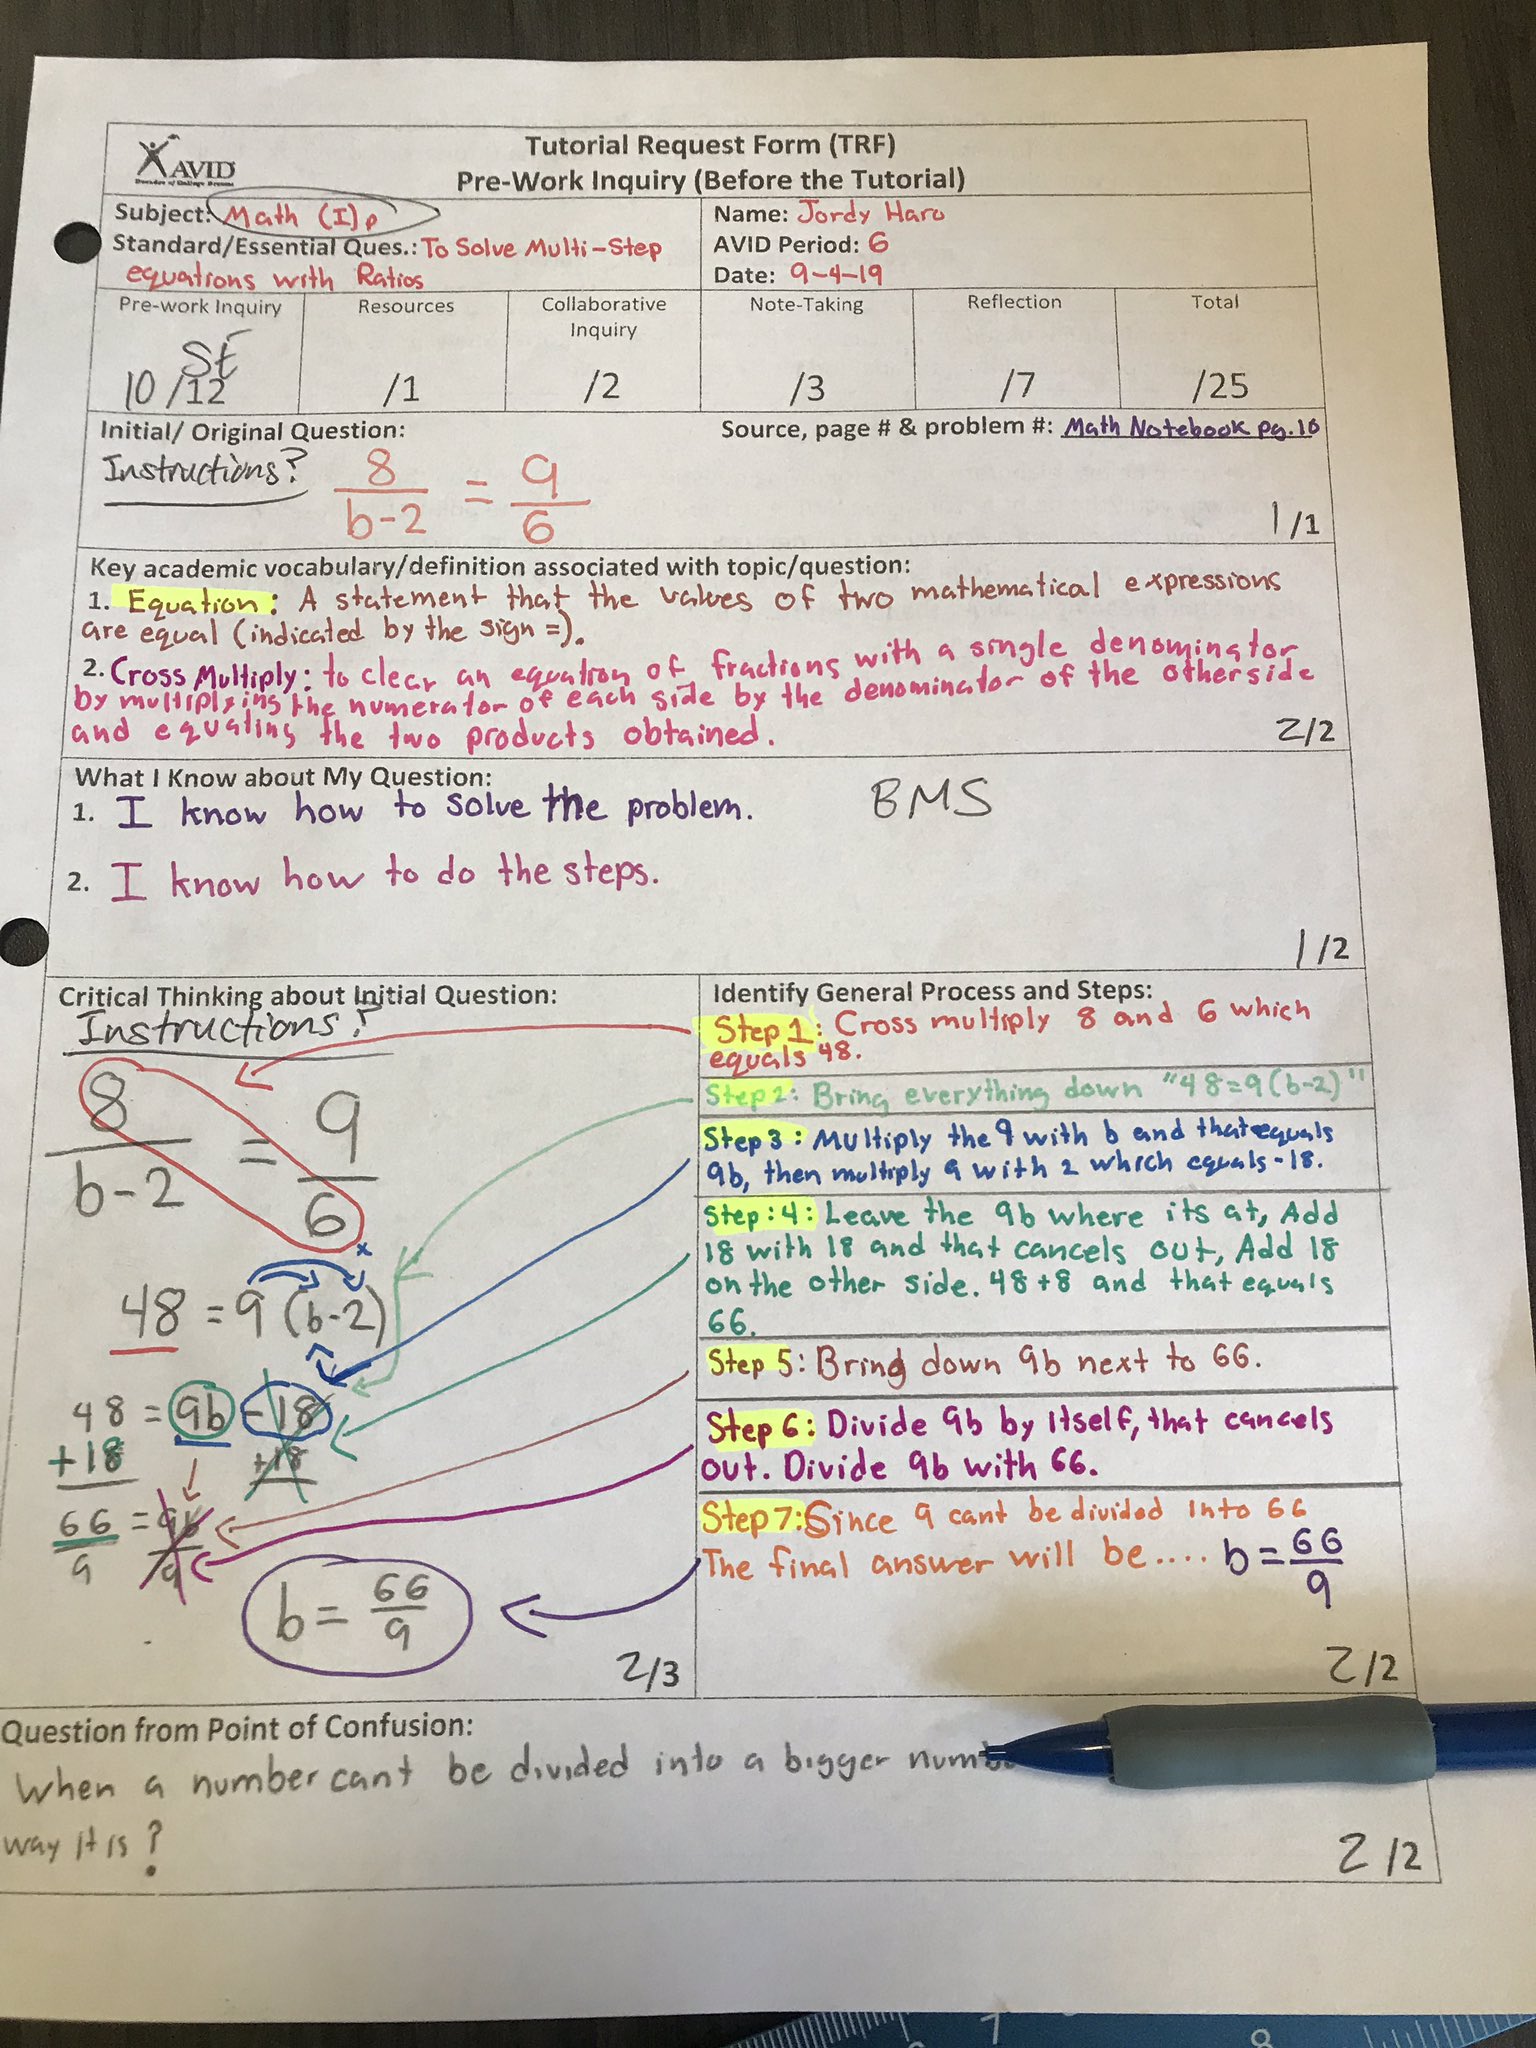 Tutorial Request Form (TRF)
AVID
Decades of College Dreams
Pre-Work Inquiry (Before the Tutorial)
Subject: Math (I)p
Name: Jordy Haro
Standard/Essential Ques.: To Solve Multi-Step
equations with Ratios
AVID Period: 6
Date: 9-4-19
Pre-work Inquiry
Resources
Collaborative
Inquiry
Note-Taking
Reflection
Total
St
10/12
/1
/2
/3
/7
/25
Initial/ Original Question:
Source, page # & problem #: Math Notebook pg.10
Instructions?
8
b-2
=
9
6
1/1
Key academic vocabulary/definition associated with topic/question:
1. Equation: A statement that the values of two mathematical expressions
are equal (indicated by the sign =).
2. Cross Multiply: to clear an equation of fractions with a single denominator
by multiplying the numerator of each side by the denominator of the otherside
and equating the two products obtained.
2/2
What I Know about My Question:
1. I know how to solve the problem.
BMS
2. I know how to do the steps.
1/2
Critical Thinking about Initial Question:
Instructions?
8
b-2
=
9
6
x
48 = 9 (b-2)
48 = 9b -18
+18 +18
66 = 9b
9 9
b = 66
9
2/3
Identify General Process and Steps:
Step 1: Cross multiply 8 and 6 which
equals 48.
Step 2: Bring everything down "48=9(b-2)"
Step 3: Multiply the 9 with b and that equals
9b, then multiply 9 with 2 which equals -18.
Step:4: Leave the 9b where its at, Add
18 with 18 and that cancels out, Add 18
on the other side. 48+8 and that equals
66.
Step 5: Bring down 9b next to 66.
Step 6: Divide 9b by itself, that cancels
out. Divide 9b with 66.
Step 7: Since 9 cant be divided into 66
The final answer will be.... b = 66
9
2/2
Question from Point of Confusion:
When a number cant be divided into a bigger
way it is?
2/2
7
8